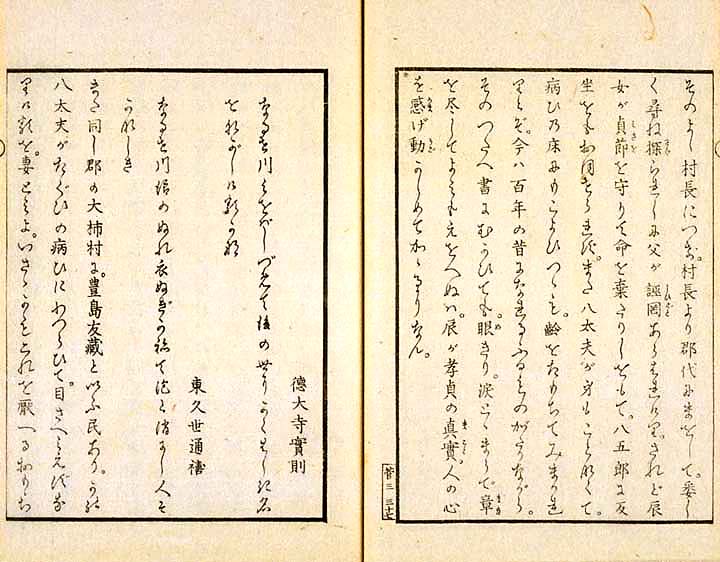 そのよし村長につぐ。村長より郡代にまをして。委し
く尋ね探られしに父が誣罔あらはれけり。されど辰
女が貞節を守りて命を棄たりしをもて。八五郎は反
坐をもおほせられず。また八太夫が身もことなくて。
病ひの床にもこよひつゝも。齢をたもちてみまかれ
りとぞ。今ハ百年の昔になれるふるものがたりながら。
そのつたへ書にむかひても。眼きり。涙こゝまりて章
を尽してよみもえをへぬハ。辰が孝貞の真實。人の心
を感げ動かしめてかゝるりなん。
菅三 三十七
德大寺實則
なるせ川 後の世 名
をながしける
東久世通禧
なるせ川 ぬれ衣ぬぎ 泡と消にし人ぞ
かなしき
また同し郡の大柿村に。豊島友藏と以ふ民あり。
八太夫がたぐひの病ひにわづらひて。目さへみえずな
りけるを。妻ともよ。いさゝかもこれを厭へるおもゝち